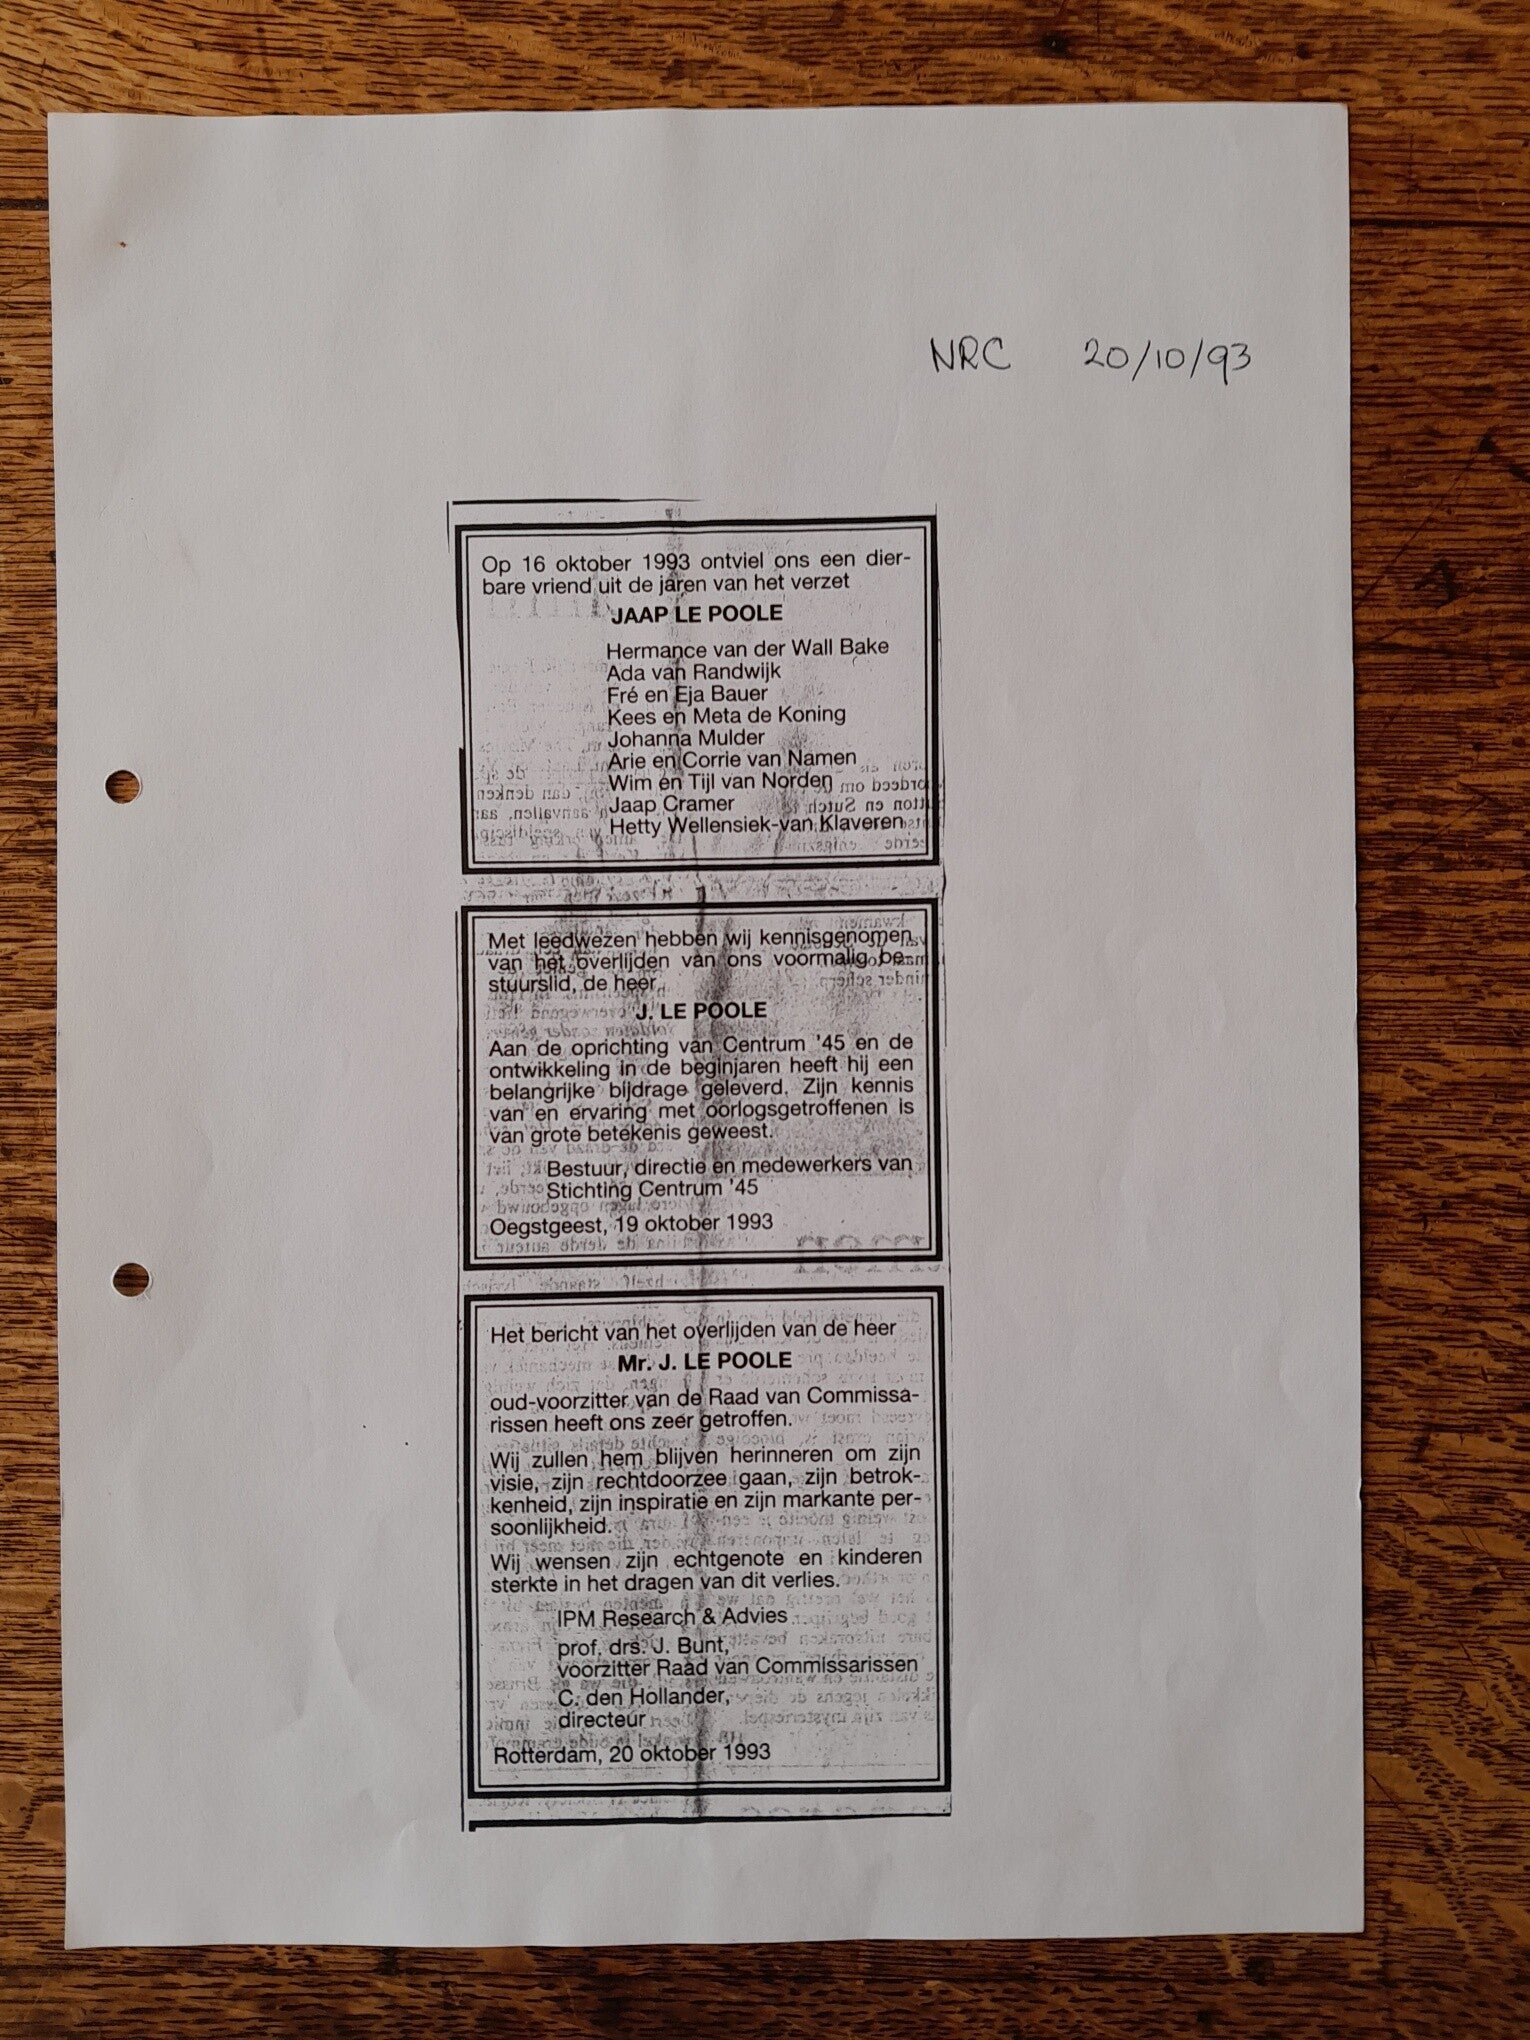 NRC 20/10/93
Op 16 oktober 1993 ontviel ons een dier-
bare vriend uit de jaren van het verzet
JAAP LE POOLE
Hermance van der Wall Bake
Ada van Randwijk
Fré en Eja Bauer
Kees en Meta de Koning
Johanna Mulder
Arie en Corrie van Namen
Wim en Tijl van Norden
Jaap Cramer
Hetty Wellensiek-van Klaveren
Met leedwezen hebben wij kennisgenomen
van het overlijden van ons voormalig be-
stuurslid, de heer
J. LE POOLE
Aan de oprichting van Centrum '45 en de
ontwikkeling in de beginjaren heeft hij een
belangrijke bijdrage geleverd. Zijn kennis
van en ervaring met oorlogsgetroffenen is
van grote betekenis geweest.
Bestuur, directie en medewerkers van
Stichting Centrum '45
Oegstgeest, 19 oktober 1993
Het bericht van het overlijden van de heer
Mr. J. LE POOLE
oud-voorzitter van de Raad van Commissa-
rissen heeft ons zeer getroffen.
Wij zullen hem blijven herinneren om zijn
visie, zijn rechtdoorzee gaan, zijn betrok-
kenheid, zijn inspiratie en zijn markante per-
soonlijkheid.
Wij wensen zijn echtgenote en kinderen
sterkte in het dragen van dit verlies.
IPM Research & Advies
prof. drs. J. Bunt,
voorzitter Raad van Commissarissen
C. den Hollander,
directeur
Rotterdam, 20 oktober 1993